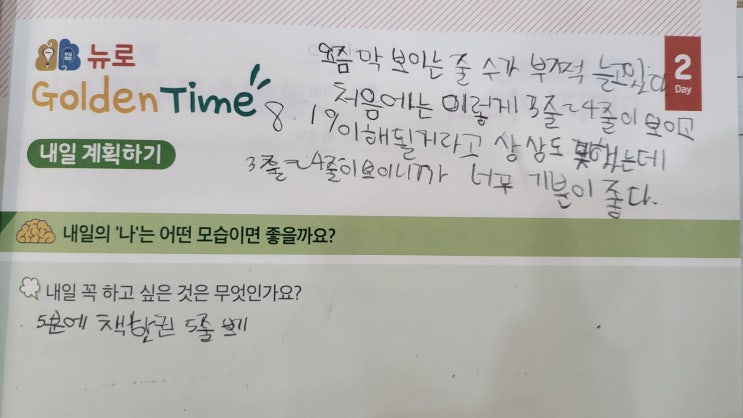 뉴로
Golden Time
2
Day
요즘 막 보이는 줄 수가 부쩍 늘고있다
처음에는 이렇게 3줄~4줄이 보이고
8.19 이해될거라고 상상도 못했는데
3줄~4줄이 보이니까 너무 기분이 좋다.
내일 계획하기
내일의 '나'는 어떤 모습이면 좋을까요?
내일 꼭 하고 싶은 것은 무엇인가요?
5분에 책 한권 5줄 보기